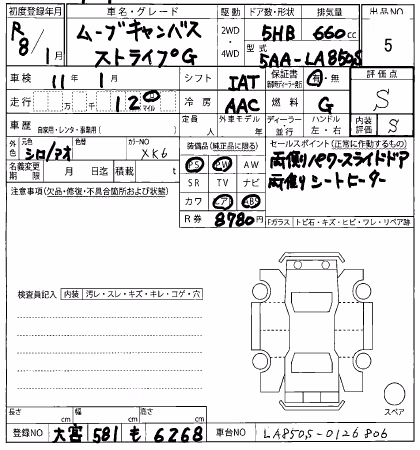 初度登録年月 車名・グレード 駆動 ドア数・形状 排気量 出品NO
R8/1月 ムーブキャンバス ストライプG 2WD・4WD 5HB 660cc 5
型式 5AA-LA850S
車検 11年1月 シフト IAT 保証書 有・無 評価点 S
走行 十万 万 千 120 km マイル 冷房 AAC 燃料 G
車歴 自家用・レンタ・事業用( ) 定員 人 外車モデル 年 ディーラー・並行 ハンドル 左・右 内装評価 S
外色 元色 シロ/アオ 色替 カラーNO XK6
装備品(純正品に限る) セールスポイント(正常に作動するもの)
PS PW AW
両側パワースライドドア
名義変更期限 月 日迄 積載 t
SR TV ナビ
両側シートヒーター
注意事項(欠品・修復・不具合箇所および状態)
カワ エアB ABS
R券 8780円
Fガラス トビ石・キズ・ヒビ・ワレ・リペア跡
検査員記入 内装 汚レ・スレ・キズ・キレ・コゲ・穴
スペア
長さ cm 幅 cm 高さ cm
登録NO 大宮 581 も 6268 車台NO LA850S-0126806